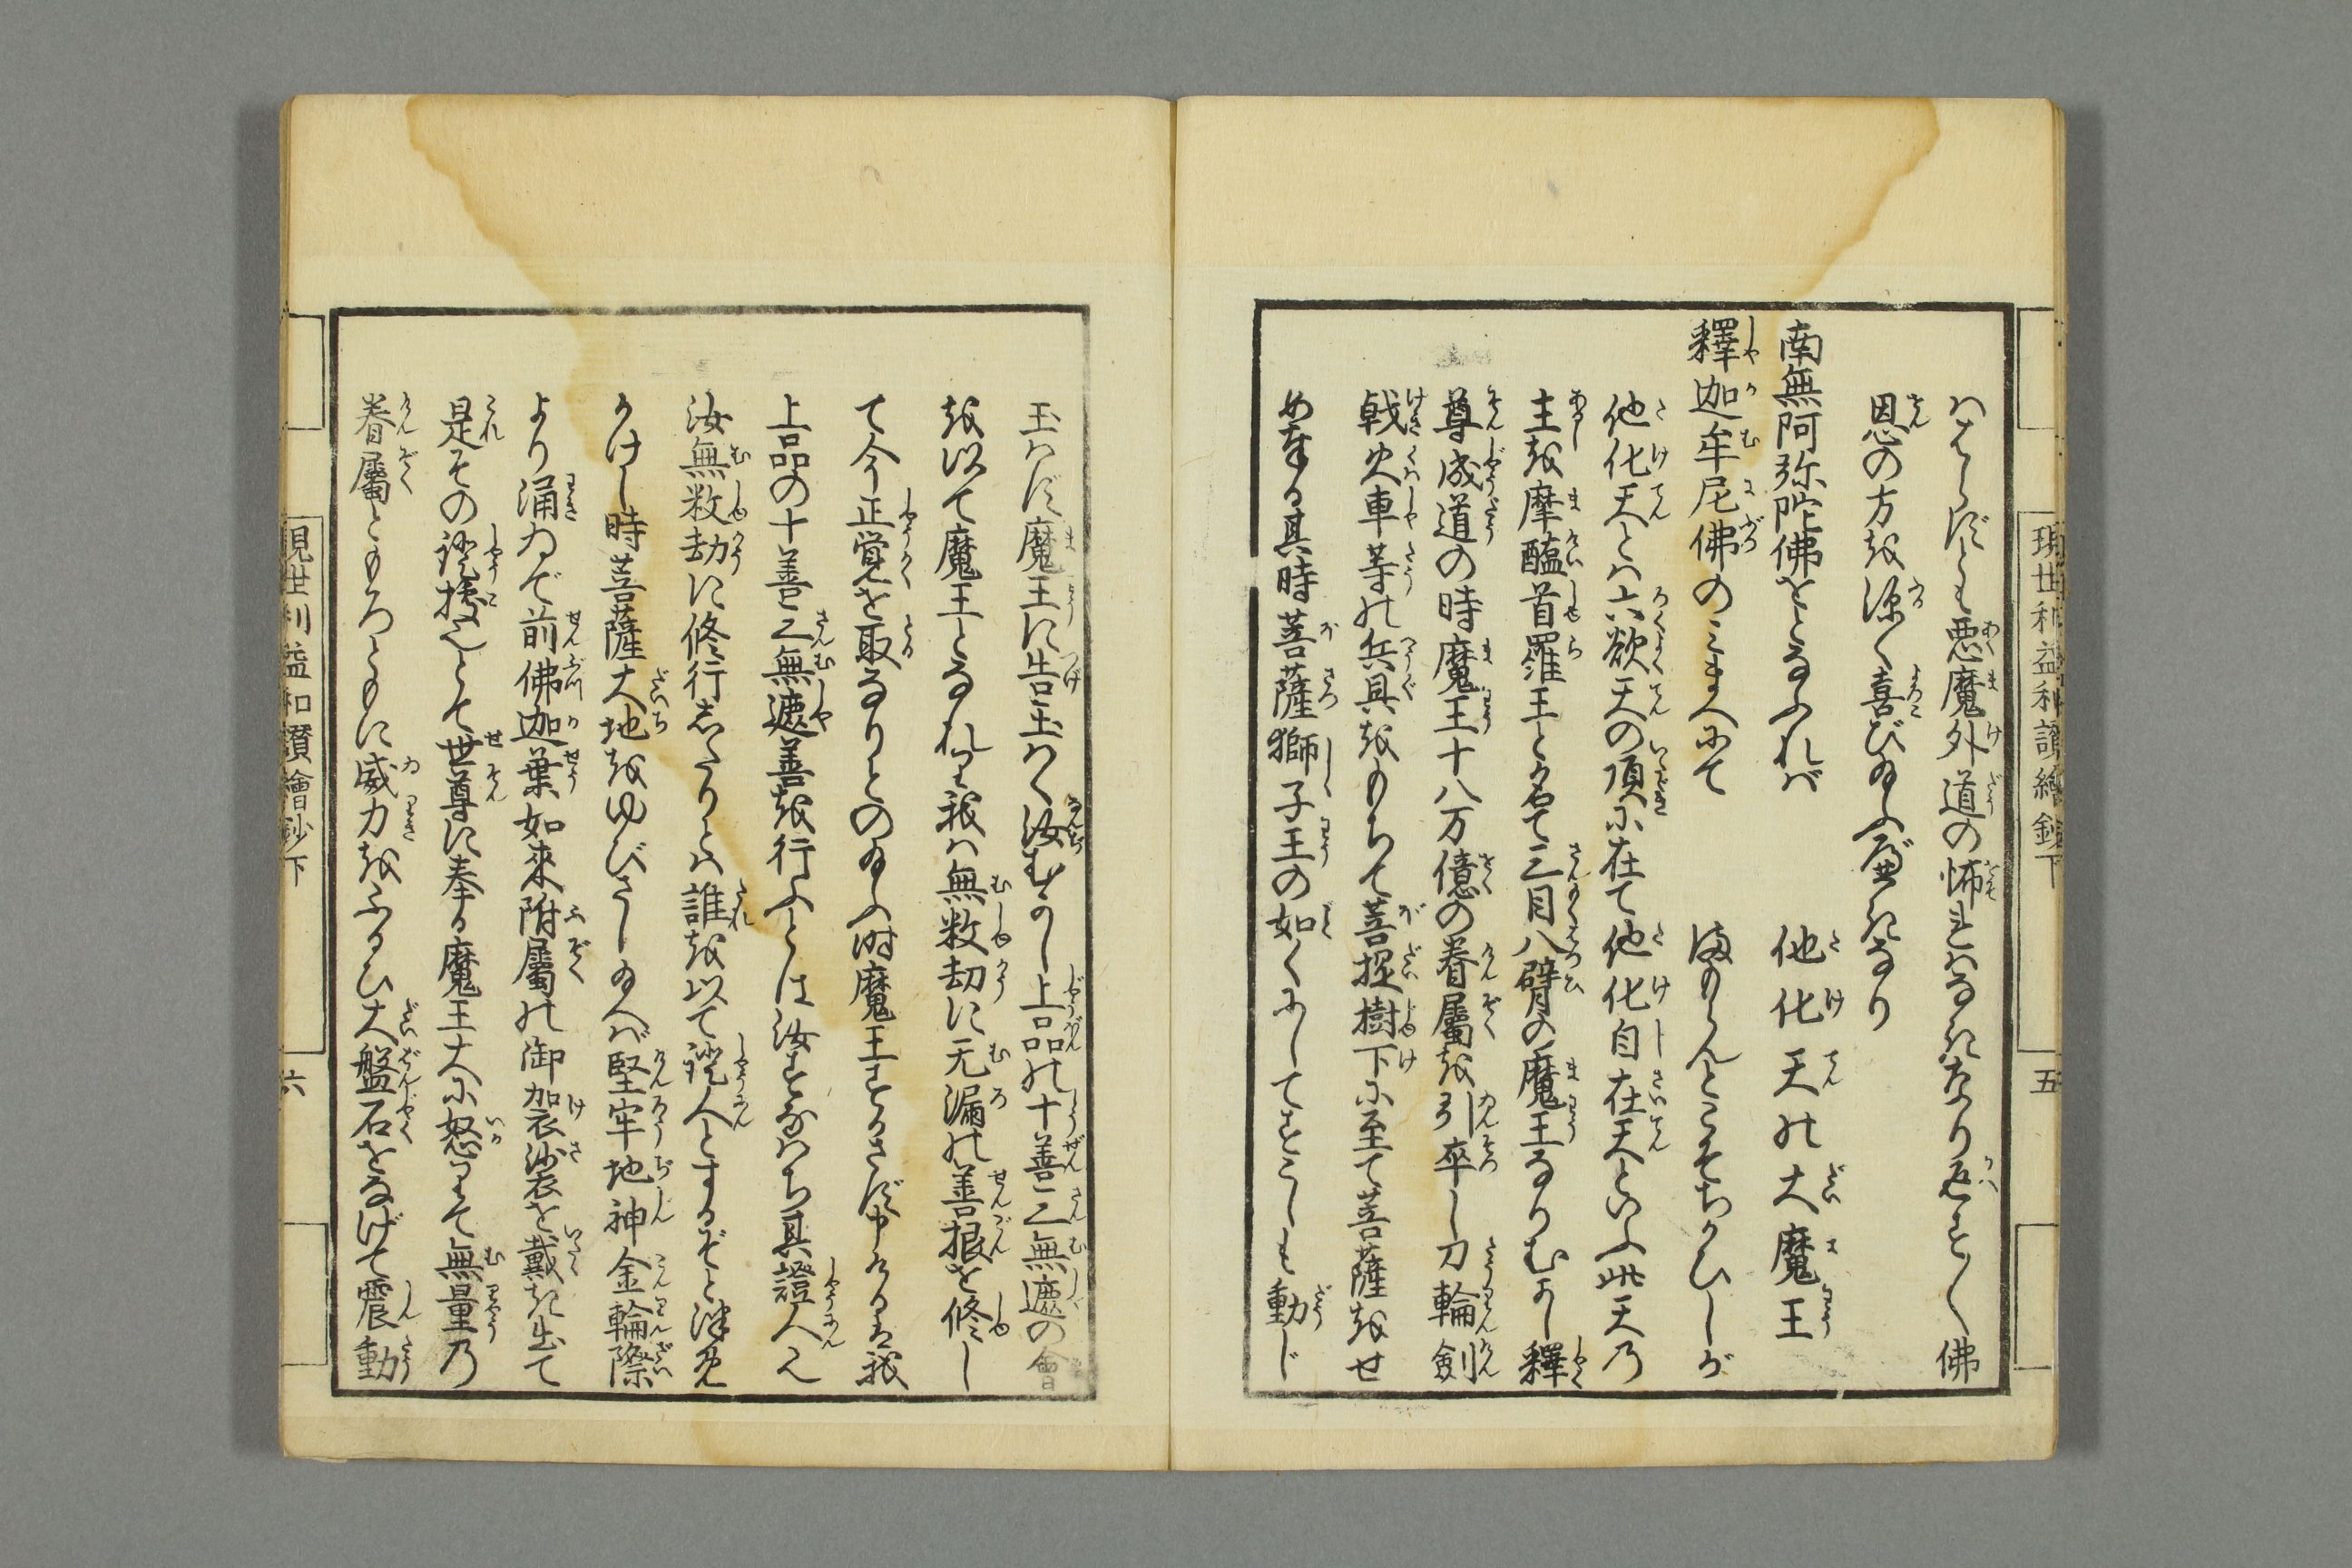 現世利益和讃繪鈔下
五
はらずとも悪魔外道の怖れはなきなり返すく佛
恩の方を深く喜び給ふべきなり
南無阿弥陀佛をとなふれば
他化天の大魔王
釋迦牟尼佛のみまへにて
まもらんとこそちかひしが
他化天とは六欲天の頂に在て他化自在天といふ此天乃
主を摩醯首羅王と名て三目八臂の魔王なりむかし釋
尊成道の時魔王十八万億の眷屬を引卒し刀輪劍
戟火車等の兵具をもちて菩提樹下に至て菩薩をせ
め奉る其時菩薩獅子王の如くにしてすこしも動じ
玉はず魔王に告玉はく汝むかし上品の十善三無遮の會
を以て魔王となれり我は無数劫に无漏の善根を修し
て今正覚を取なりとの給ふ時魔王するさず申けるは我
上品の十善三無遮善を行ふとは汝すなはち其證人也
汝無数劫に修行したりとは誰を以て證人とするぞと
かけし時菩薩大地をゆびさし給へば堅牢地神金輪際
より涌ゐで前佛迦葉如來附屬の御袈裟を戴き出て
是その證據也とて世尊に奉る魔王大に怒りて無量乃
眷屬ともろともに威力をふるひ大盤石をなげて震動
現世利益和讃繪鈔下
六